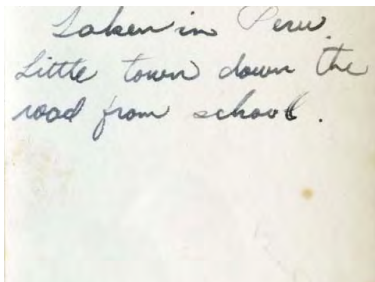 Taken in Peru.
Little town down the
road from school.